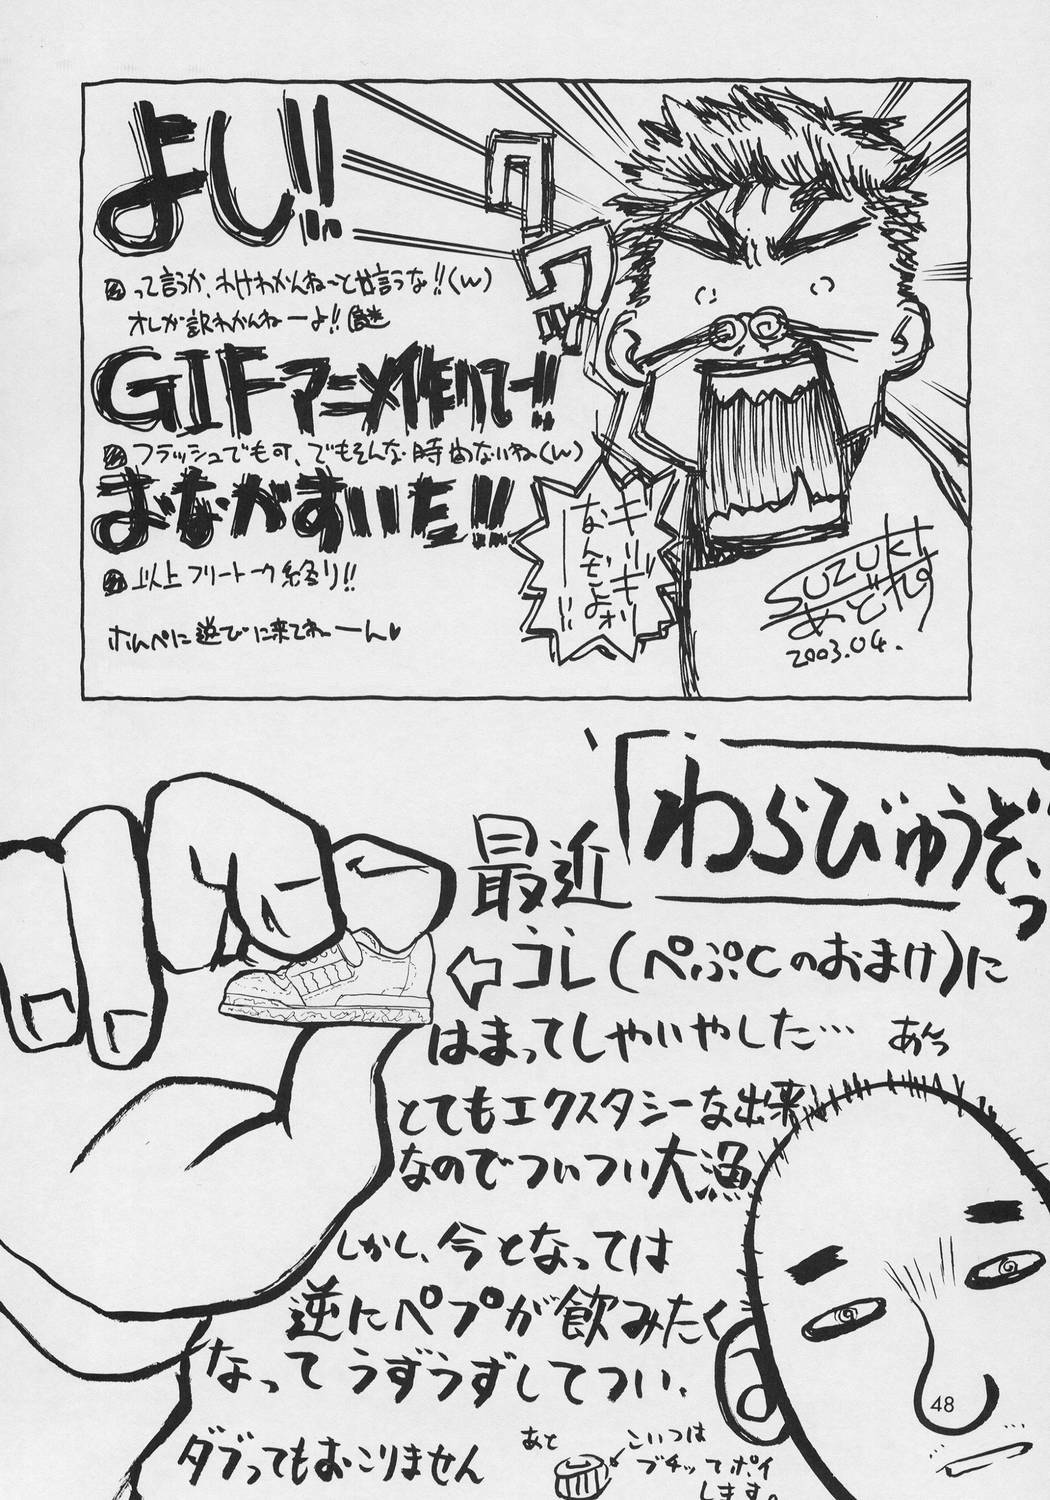 よし!!
って言うか、わけわかんね〜とか言うな!!(w)
オレが訳わかんねーよ!!謎
GIFアニメ作りてー!!
フラッシュでも可、でもそんな時間ないね(w)
おながすいた!!
以上フリートーク終り!!
ホムペに遊びに来てねーーん♥
クワッ
ギリギリ
なんだよォ
ーー!!
SUZUKI
あどれす
2003.04.
「わらびゅうぞっ
最近
⇦コレ(ぺぷCのおまけ)に
はまってしゃいやした…
あんっ
とてもエクスタシーな出来
なのでついつい大漁
しかし、今となっては
逆にペプが飲みたく
なってうずうずしてつい、
ダブってもおこりません
あと
こいつは
ブチッてポイ
します。
48